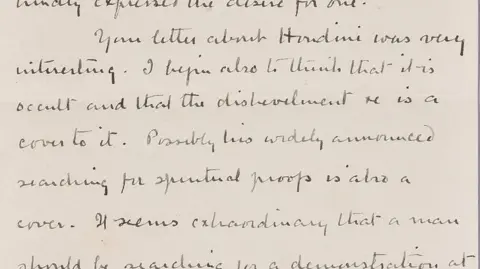 kindly expressed the desire for one.
Your letter about Houdini was very
interesting. I begin also to think that it is
occult and that the dishevelment re is a
cover to it. Possibly his widely announced
searching for spiritual proofs is also a
cover. It seems extraordinary that a man
should be searching for a demonstration at